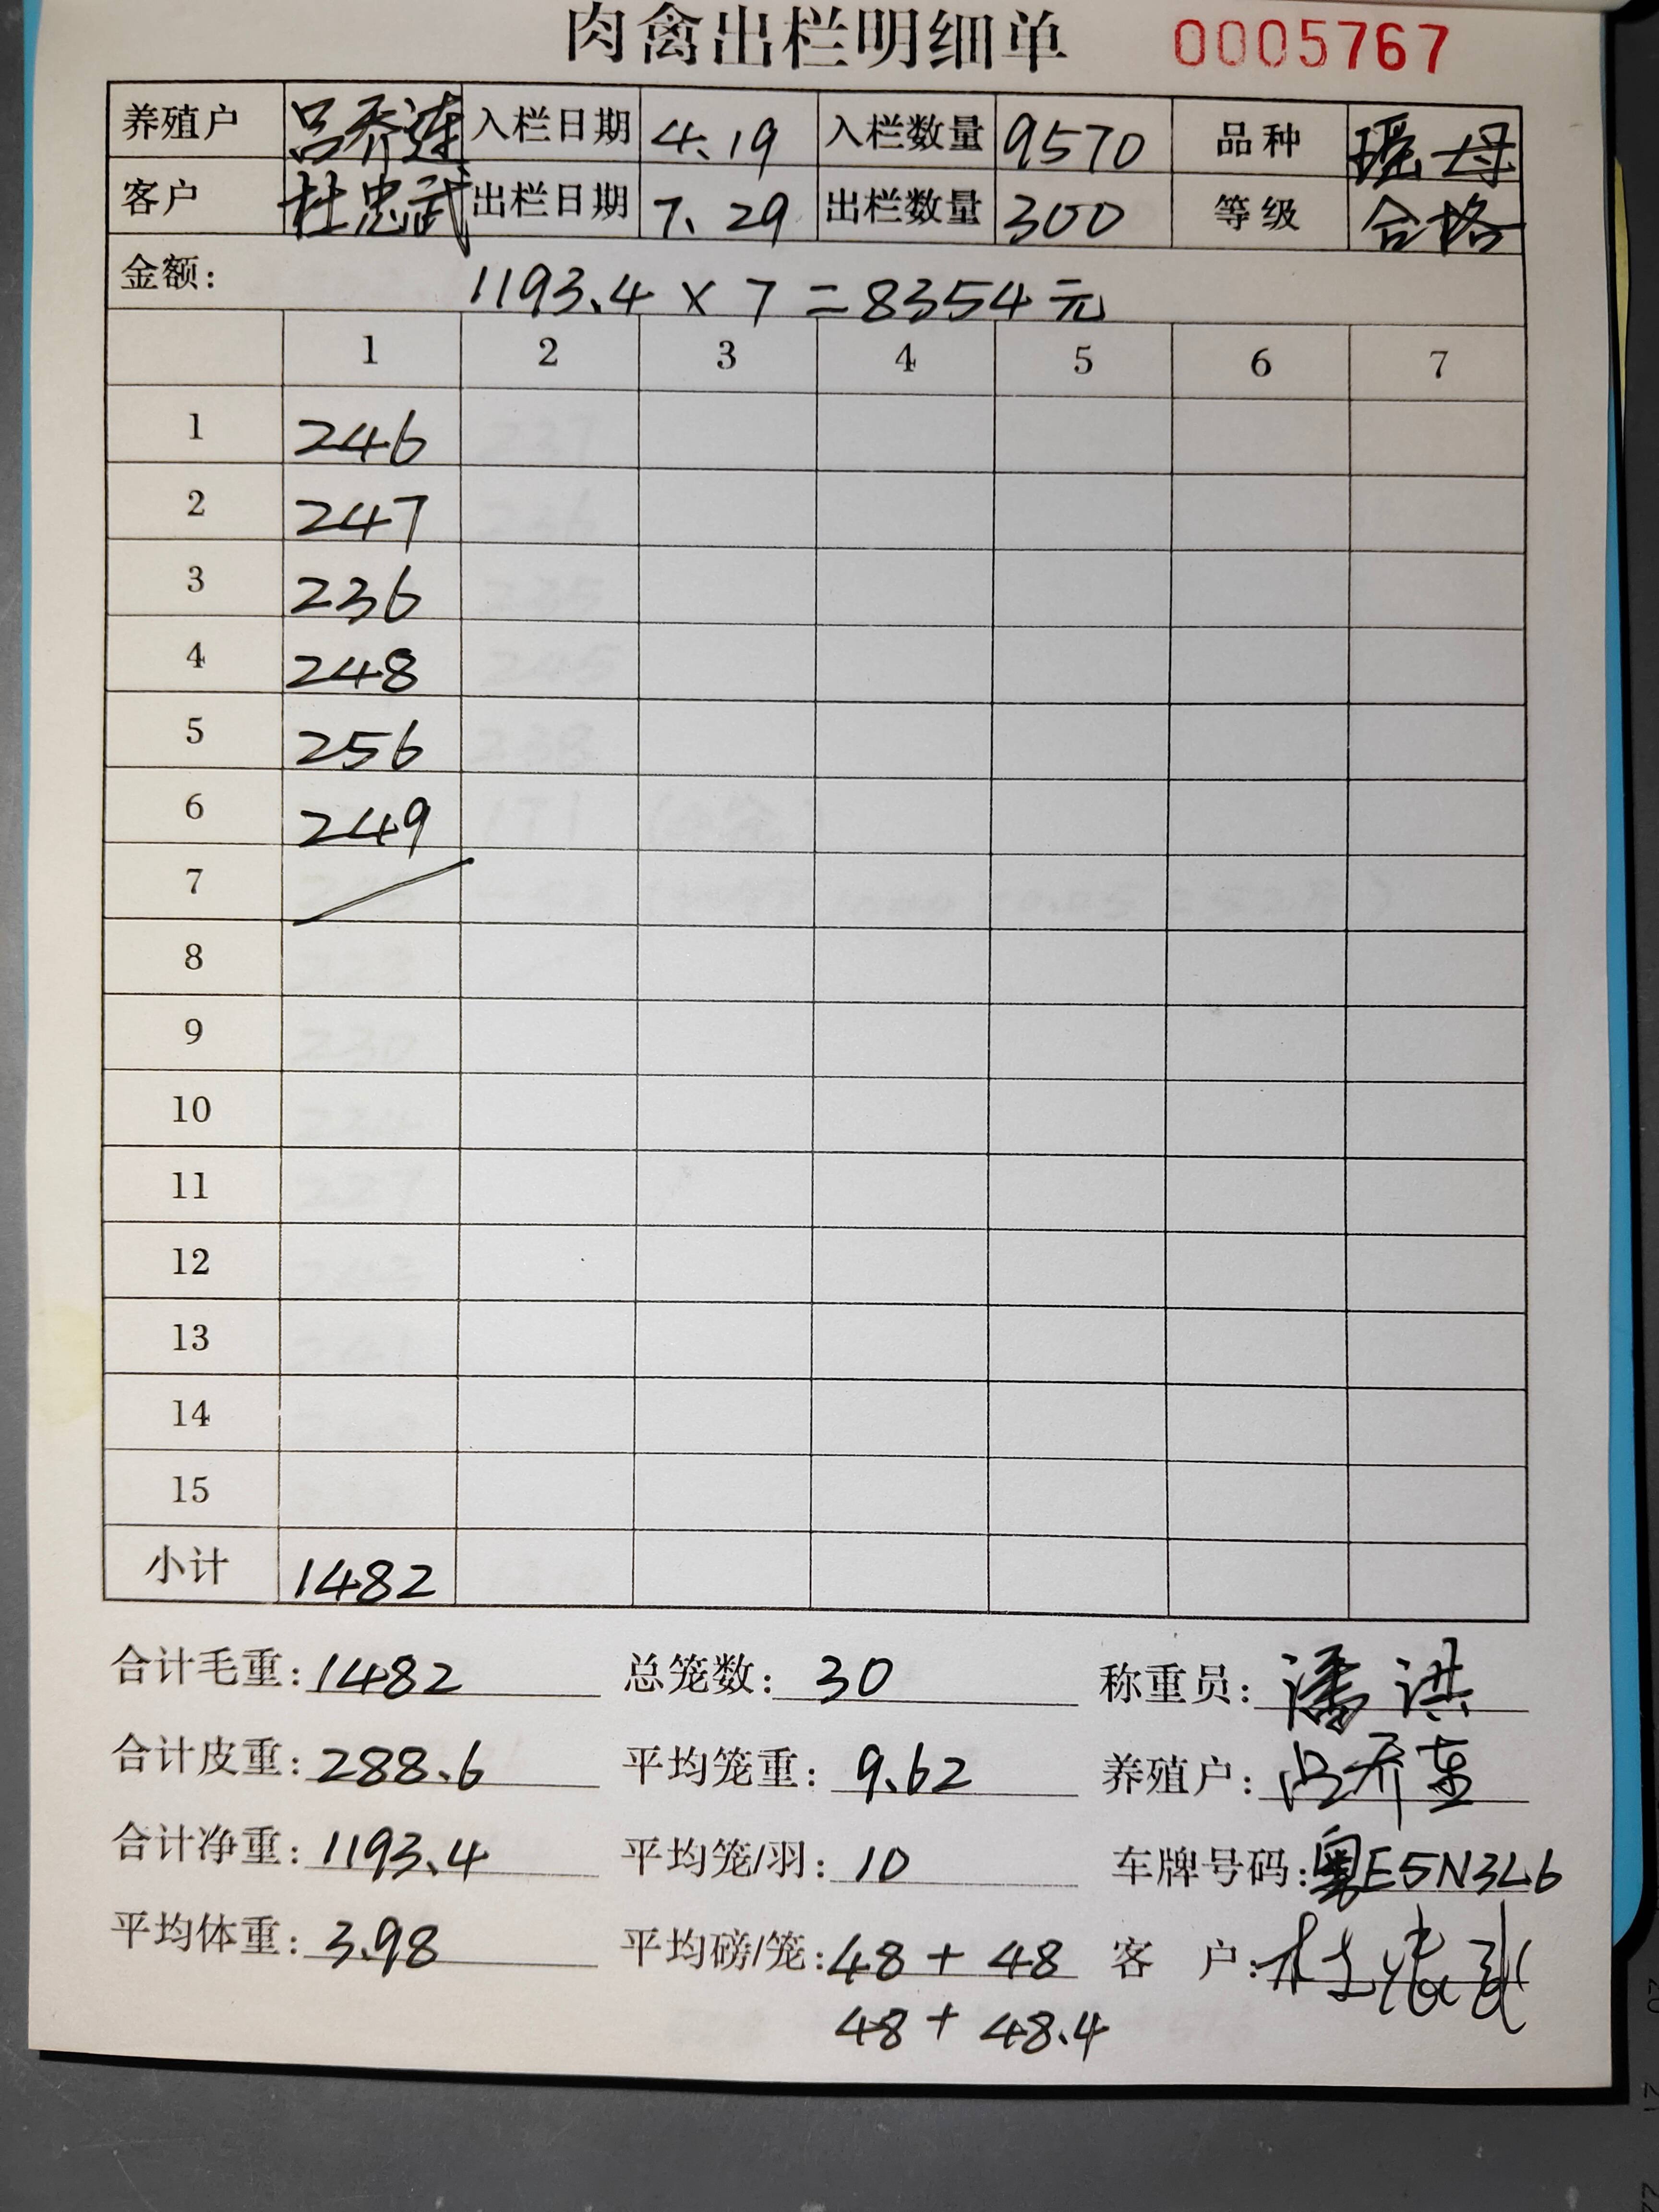 肉禽出栏明细单 0005767
养殖户 吕乔连 入栏日期 4.19 入栏数量 9570 品种 瑶母
客户 杜忠武 出栏日期 7.29 出栏数量 300 等级 合格
金额: 1193.4 × 7 = 8354元
1 2 3 4 5 6 7
1 246
2 247
3 236
4 248
5 256
6 249
7
8
9
10
11
12
13
14
15
小计 1482
合计毛重: 1482 总笼数: 30 称重员: 潘洪
合计皮重: 288.6 平均笼重: 9.62 养殖户: 吕乔连
合计净重: 1193.4 平均笼/羽: 10 车牌号码: 粤E5N3L6
平均体重: 3.98 平均磅/笼: 48 + 48 客 户: 杜忠武
48 + 48.4